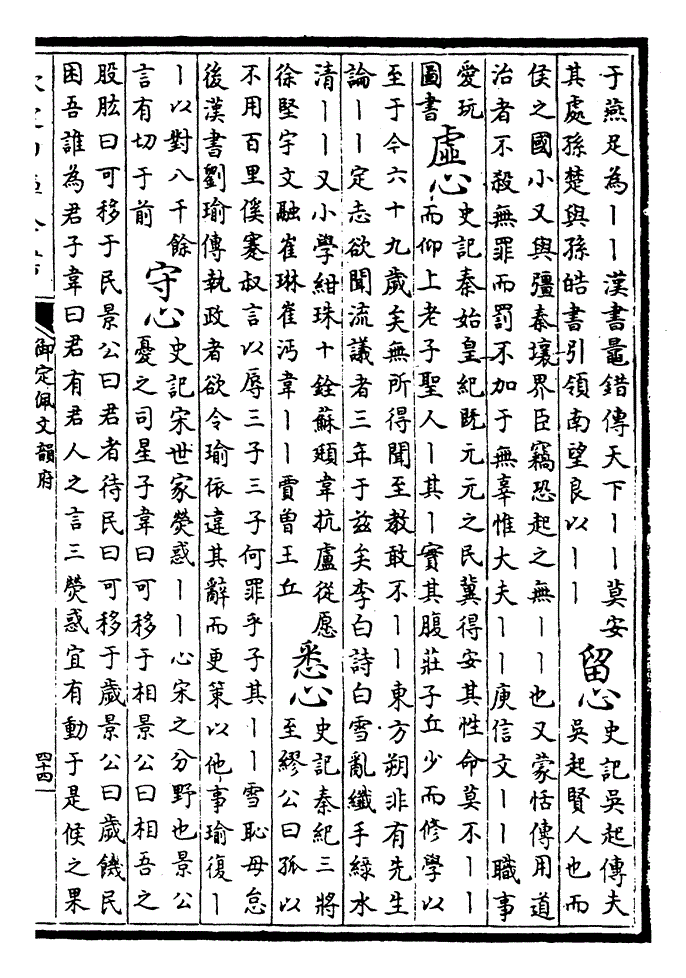 于燕足為丨丨漢書鼂錯傳天下丨丨莫安
其處孫楚與孫皓書引領南望良以丨丨
留心
史記吳起傳夫
吳起賢人也而
侯之國小又與彊秦壤界臣竊恐起之無丨丨也又蒙恬傳用道
治者不殺無罪而罰不加于無辜惟大夫丨丨庾信文丨丨職事
愛玩
圖書
虛心
史記秦始皇紀既元元之民冀得安其性命莫不丨丨
而仰上老子聖人丨其丨實其腹莊子丘少而修學以
至于今六十九歲矣無所得聞至教敢不丨丨東方朔非有先生
論丨丨定志欲聞流議者三年于茲矣李白詩白雪亂纖手綠水
清丨丨又小學紺珠十銓蘇頲韋抗盧從愿
徐堅宇文融崔琳崔沔韋丨丨賈曾王丘
悉心
史記秦紀三將
至繆公曰孤以
不用百里傒蹇叔言以辱三子三子何罪乎子其丨丨雪恥毋怠
後漢書劉瑜傳執政者欲令瑜依違其辭而更策以他事瑜復丨
丨以對八千餘
言有切于前
守心
史記宋世家熒惑丨丨心宋之分野也景公
憂之司星子韋曰可移于相景公曰相吾之
股肱曰可移于民景公曰君者待民曰可移于歲景公曰歲饑民
困吾誰為君子韋曰君有君人之言三熒惑宜有動于是候之果
御定佩文韻府
四十四